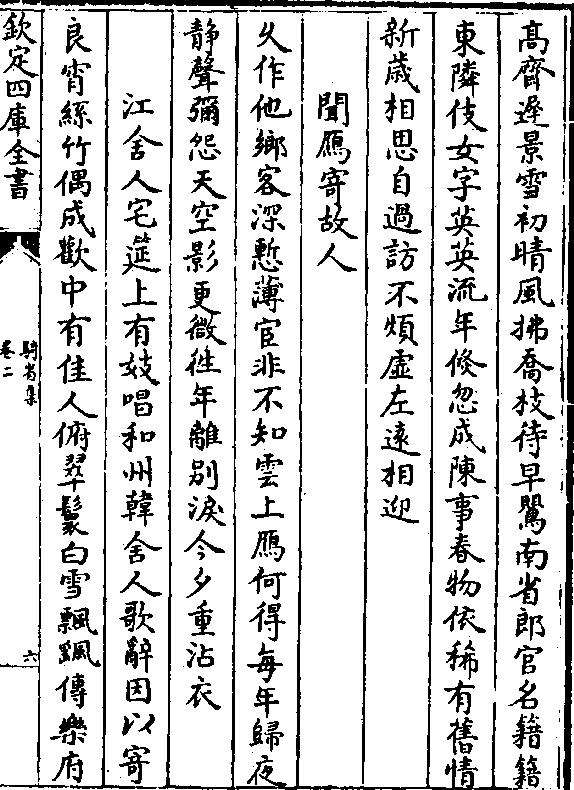 髙齋遲景雪初晴風拂喬枝待早鸎南省郎官名籍籍
東隣伎女字英英流年倐忽成陳事春物依稀有舊情
新歳相思自過訪不煩虚左逺相迎
聞鴈寄故人
乆作他鄉客深慙薄宦非不知雲上鴈何得每年歸夜
静聲彌怨天空影更微徃年離别淚今夕重沾衣
江舍人宅筵上有妓唱和州韓舍人歌辭因以寄
良宵絲竹偶成歡中有佳人俯翠鬟白雪飄飖傳樂府
欽定四庫全書
騎省集
卷二
六